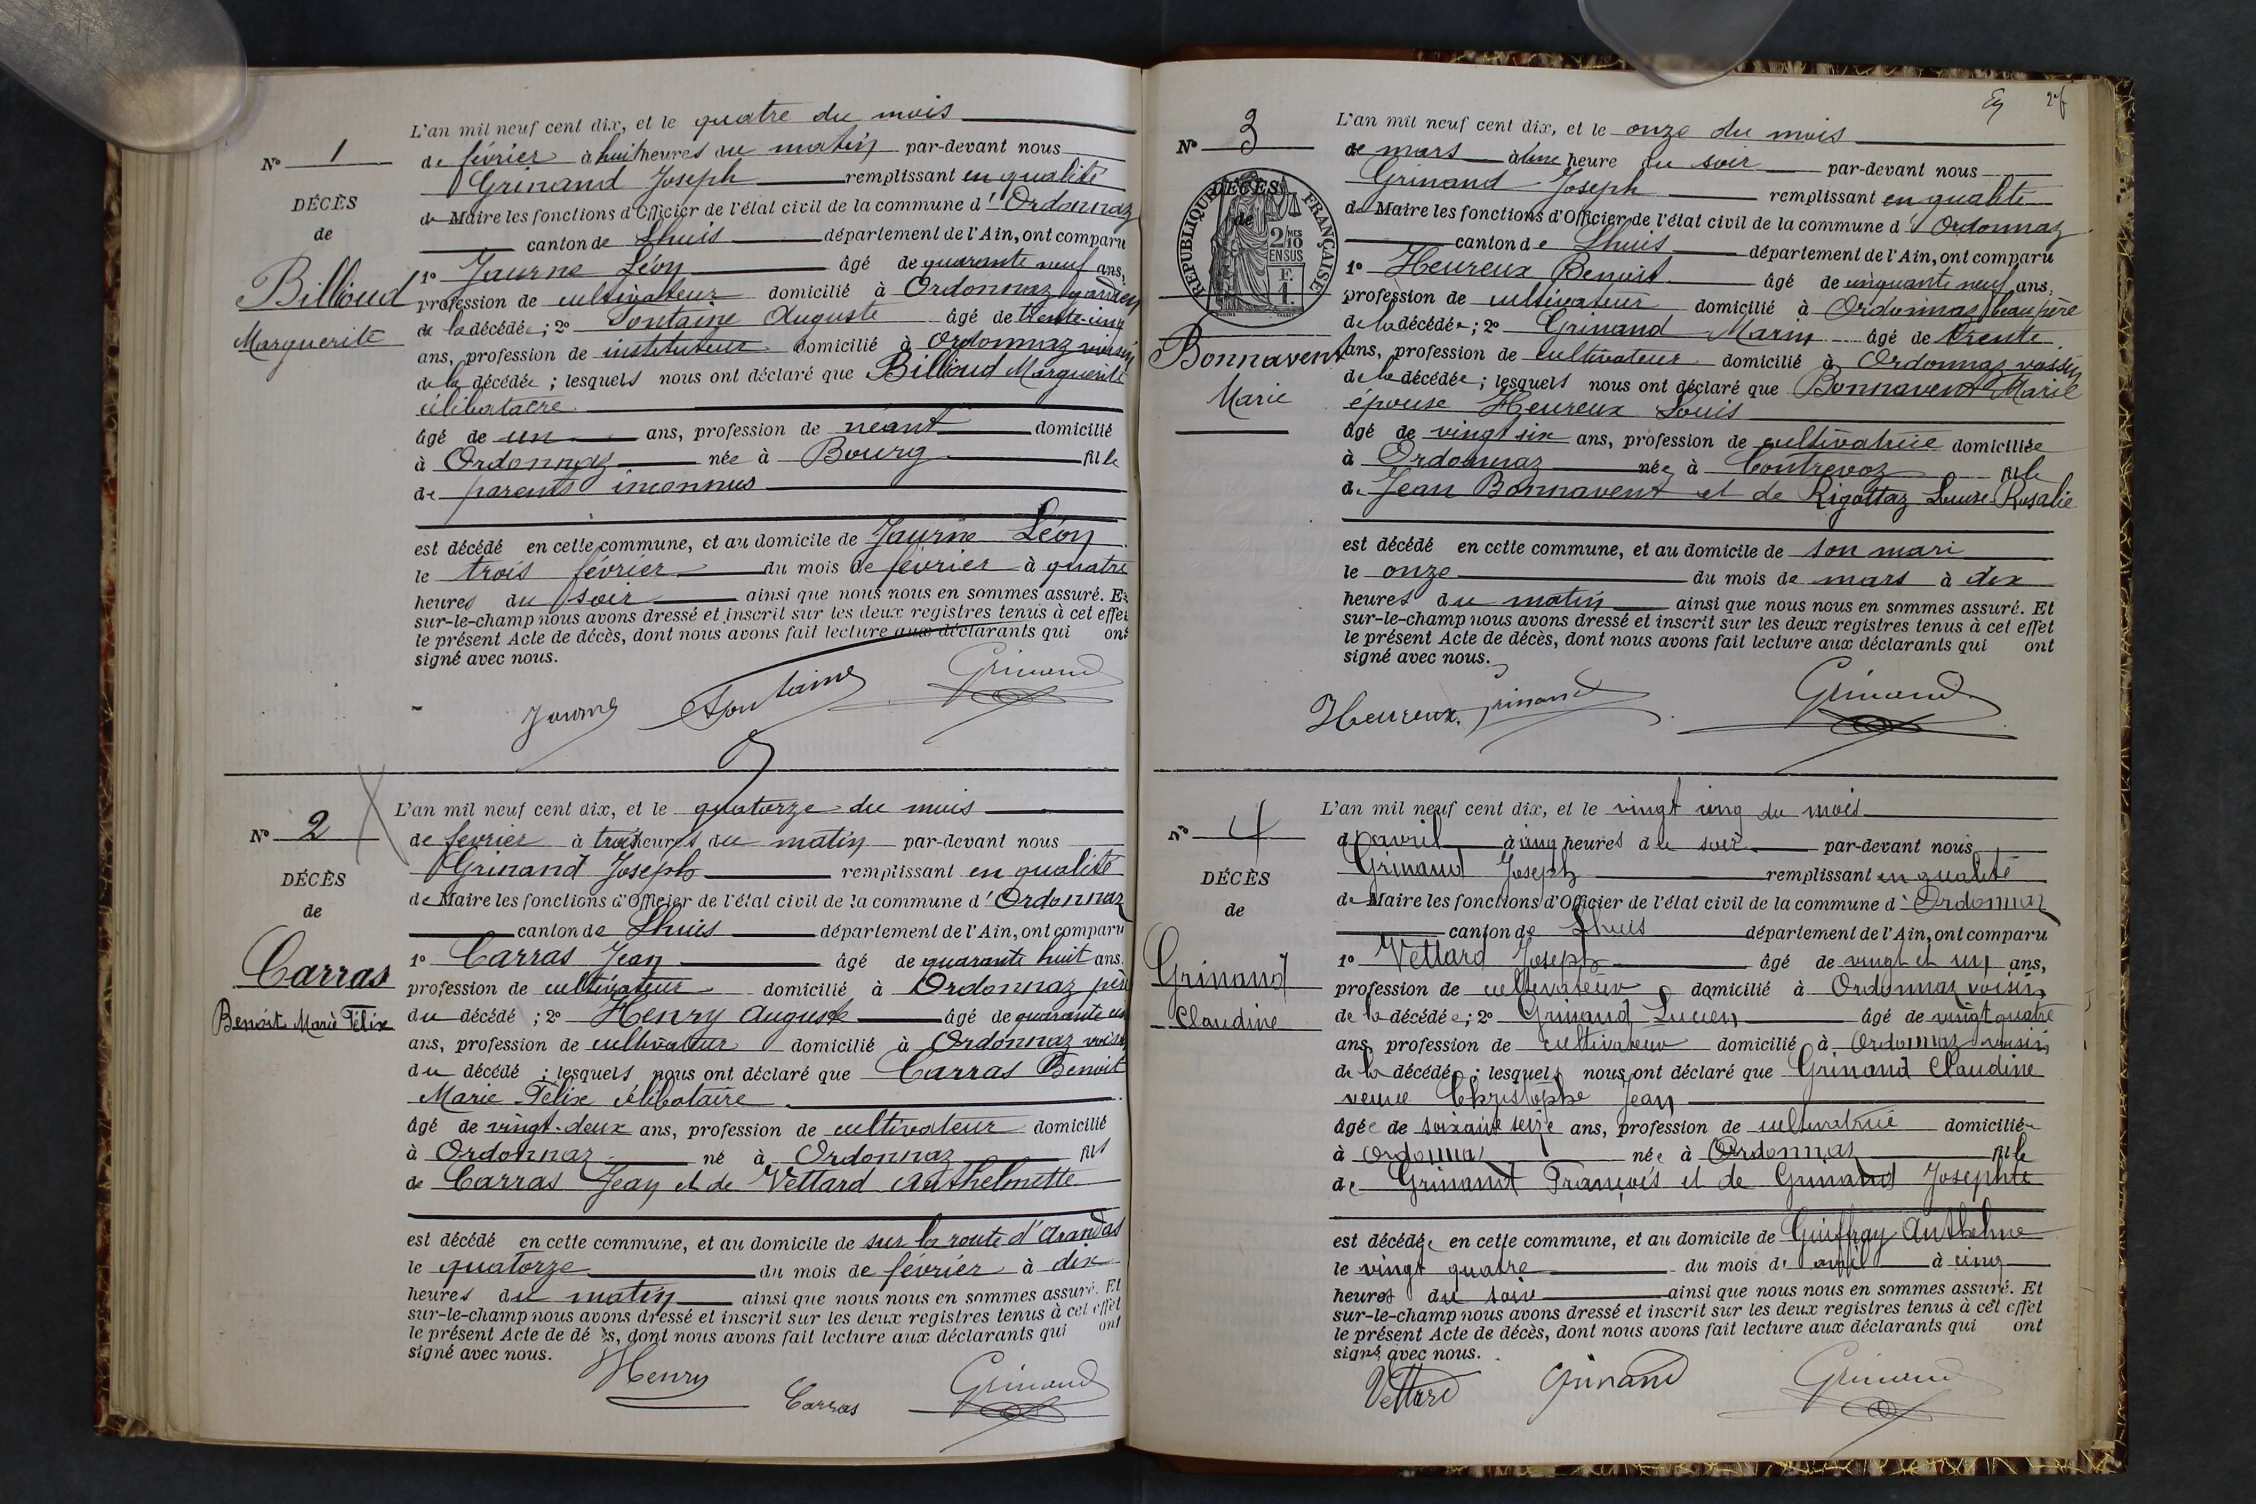 L'an mil neuf cent dix, et le quatre du mois
N° 1
de février à huit heures du matin par-devant nous
Grinand Joseph remplissant en qualité
DÉCÈS
de Maire les fonctions d'Officier de l'état civil de la commune d'Ordonnaz
de
canton de Lhuis département de l'Ain, ont comparu
1° Jaurne Léon âgé de quarante neuf ans,
Billioud
profession de cultivateur domicilié à Ordonnaz gardien
de la décédée; 2° Fontaine Auguste âgé de trente-cinq
Marguerite
ans, profession de instituteur domicilié à Ordonnaz voisin
de la décédée; lesquels nous ont déclaré que Billioud Marguerite
célibataire
âgé de un ans, profession de néant domicilié
à Ordonnaz née à Bourg fille
de parents inconnus
est décédé en cette commune, et au domicile de Jaurne Léon
le trois février du mois de février à quatre
heures du soir ainsi que nous nous en sommes assuré. Et
sur-le-champ nous avons dressé et inscrit sur les deux registres tenus à cet effet
le présent Acte de décès, dont nous avons fait lecture aux déclarants qui ont
signé avec nous.
Jaurne Fontaine Grinand
L'an mil neuf cent dix, et le quatorze du mois
N° 2
de fevrier à trois heures du matin par-devant nous
Grinand Joseph remplissant en qualité
DÉCÈS
de Maire les fonctions d'Officier de l'état civil de la commune d'Ordonnaz
de
canton de Lhuis département de l'Ain, ont comparu
1° Carras Jean âgé de quarante huit ans.
Carras
profession de cultivateur domicilié à Ordonnaz père
Benoit Marie Félix
du décédé; 2° Henry Auguste âgé de quarante
ans, profession de cultivateur domicilié à Ordonnaz voisin
du décédé; lesquels nous ont déclaré que Carras Benoit
Marie Félix célibataire
âgé de vingt-deux ans, profession de cultivateur domicilié
à Ordonnaz né à Ordonnaz fils
de Carras Jean et de Vettard Anthelmette
est décédé en cette commune, et au domicile de sur la route d'Arandas
le quatorze du mois de février à dix
heures du matin ainsi que nous nous en sommes assuré. Et
sur-le-champ nous avons dressé et inscrit sur les deux registres tenus à cet effet
le présent Acte de décès, dont nous avons fait lecture aux déclarants qui ont
signé avec nous.
Henry Carras Grinand
L'an mil neuf cent dix, et le onze du mois
N° 3
de mars à une heure du soir par-devant nous
Grinand Joseph remplissant en qualité
DÉCÈS
de
RÉPUBLIQUE FRANÇAISE
2/10 MES EN SUS
F. 1.
de Maire les fonctions d'Officier de l'état civil de la commune d'Ordonnaz
canton de Lhuis département de l'Ain, ont comparu
1° Heureux Benoist âgé de cinquante neuf ans,
profession de cultivateur domicilié à Ordonnaz beau père
de la décédée; 2° Grinand Marin âgé de trente
Bonnavent
ans, profession de cultivateur domicilié à Ordonnaz voisin
Marie
de la décédée; lesquels nous ont déclaré que Bonnavent Marie
épouse Heureux Louis
âgé de vingt six ans, profession de cultivatrice domiciliée
à Ordonnaz née à Contrevoz fille
de Jean Bonnavent et de Rigottaz Louise Rosalie
est décédé en cette commune, et au domicile de son mari
le onze du mois de mars à dix
heures du matin ainsi que nous nous en sommes assuré. Et
sur-le-champ nous avons dressé et inscrit sur les deux registres tenus à cet effet
le présent Acte de décès, dont nous avons fait lecture aux déclarants qui ont
signé avec nous.
Heureux. Grinand Grinand
L'an mil neuf cent dix, et le vingt cinq du mois
N° 4
d'avril à cinq heures de soir par-devant nous
Grinand Joseph remplissant en qualité
DÉCÈS
de Maire les fonctions d'Officier de l'état civil de la commune d'Ordonnaz
de
canton de Lhuis département de l'Ain, ont comparu
1° Vettard Joseph âgé de vingt et un ans,
Grinand
profession de cultivateur domicilié à Ordonnaz voisin
Claudine
de la décédée; 2° Grinand Lucien âgé de vingt quatre
ans, profession de cultivateur domicilié à Ordonnaz voisin
de la décédée; lesquels nous ont déclaré que Grinand Claudine
veuve Christophe Jean
âgée de soixante seize ans, profession de cultivatrice domiciliée
à Ordonnaz née à Ordonnaz fille
de Grinand François et de Grinand Josephte
est décédée en cette commune, et au domicile de Guiffray Anthelme
le vingt quatre du mois d'avril à cinq
heures du soir ainsi que nous nous en sommes assuré. Et
sur-le-champ nous avons dressé et inscrit sur les deux registres tenus à cet effet
le présent Acte de décès, dont nous avons fait lecture aux déclarants qui ont
signé avec nous.
Vettard Grinand Grinand